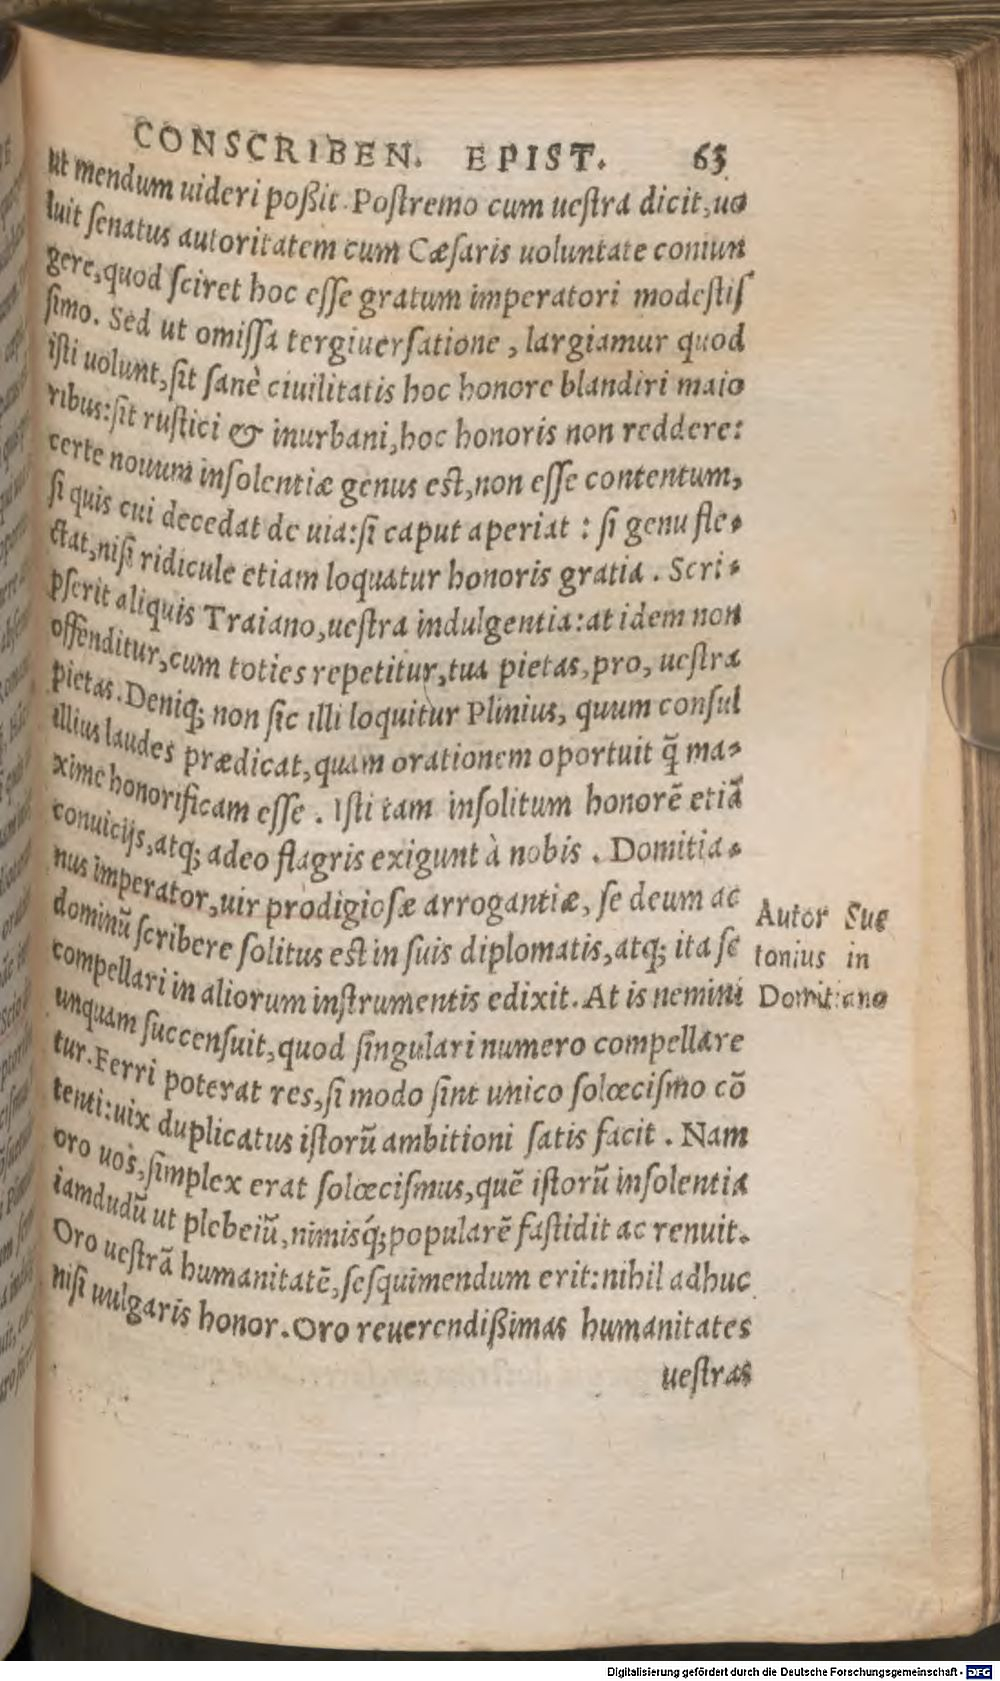 CONSCRIBEN. EPIST. 63
ut mendum uideri poßit. Poſtremo cum ueſtra dicit, uo
luit ſenatus autoritatem cum Cæſaris uoluntate coniun
gere, quod ſciret hoc eſſe gratum imperatori modeſtiſ
ſimo. Sed ut omiſſa tergiuerſatione, largiamur quod
iſti uolunt, ſit ſanè ciuilitatis hoc honore blandiri maio
ribus: ſit ruſtici & inurbani, hoc honoris non reddere:
certe nouum inſolentiæ genus eſt, non eſſe contentum,
ſi quis cui decedat de uia: ſi caput aperiat: ſi genu fle-
ctat, niſi ridicule etiam loquatur honoris gratia. Scri-
pſerit aliquis Traiano, ueſtra indulgentia: at idem non
offenditur, cum toties repetitur, tua pietas, pro, ueſtra
pietas. Deniq; non ſic illi loquitur Plinius, quum conſul
illius laudes prædicat, quam orationem oportuit q̃ ma-
xime honorificam eſſe. Iſti tam inſolitum honorẽ etiã
conuicijs, atq; adeo flagris exigunt à nobis. Domitia-
nus imperator, uir prodigioſæ arrogantiæ, ſe deum ac
dominũ ſcribere ſolitus eſt in ſuis diplomatis, atq; ita ſe
compellari in aliorum inſtrumentis edixit. At is nemini
unquam ſuccenſuit, quod ſingulari numero compellare
tur. Ferri poterat res, ſi modo ſint unico ſolœciſmo cõ
tenti: uix duplicatus iſtorũ ambitioni ſatis facit. Nam
oro uos, ſimplex erat ſolœciſmus, quẽ iſtorũ inſolentia
iamdudũ ut plebeiũ, nimisq́; popularẽ faſtidit ac renuit.
Oro ueſtrã humanitatẽ, ſeſquimendum erit: nihil adhuc
niſi uulgaris honor. Oro reuerendißimas humanitates
ueſtras
Autor Sue
tonius in
Domitiano